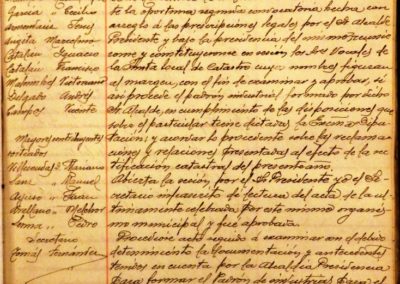 García Cecilio
Sinesio
Angita Marcelino
Catalán Ignacio
Catalán Francisco
Victoriano
Delgado Andrés
Campos Vicente
Mayores contribuyentes
sorteados
Mariano
Sanz " Manuel
" Juan
Arellano " Melchor
Lerma " Pedro
Secretario
Tomás Fernández
la oportuna segunda convocatoria hecha con
arreglo á las prescripciones legales por el Sr Alcalde
Presidente y bajo la presidencia del mismo, reunie
ronse y constituyeronse en sesión los Sres Vocales de
la Junta local de Catastro cuyo nombres figuran
al margen, con el fin de examinar y aprobar, si
así procede el padrón industrial formado por dicho
Sr. Alcalde, en cumplimiento de las disposiciones que
sobre el particular tiene dictadas la Excma Dipu
tación y acordar lo procedente sobre las reclama
ciones y relaciones presentadas al efecto de la rec
tificación catastral del presente año.
Abierta la sesión, por el Sr Presidente, yo el Se
cretario infrascrito dí lectura del acta de la úl
timamente celebrada por este mismo organis
mo municipal y fué aprobada.
Procediose acto seguido á examinar con el debido
detenimiento la documentación y antecedentes
tenidos en cuenta por la Alcaldía Presidencia
para formar el Padrón de industrias para el